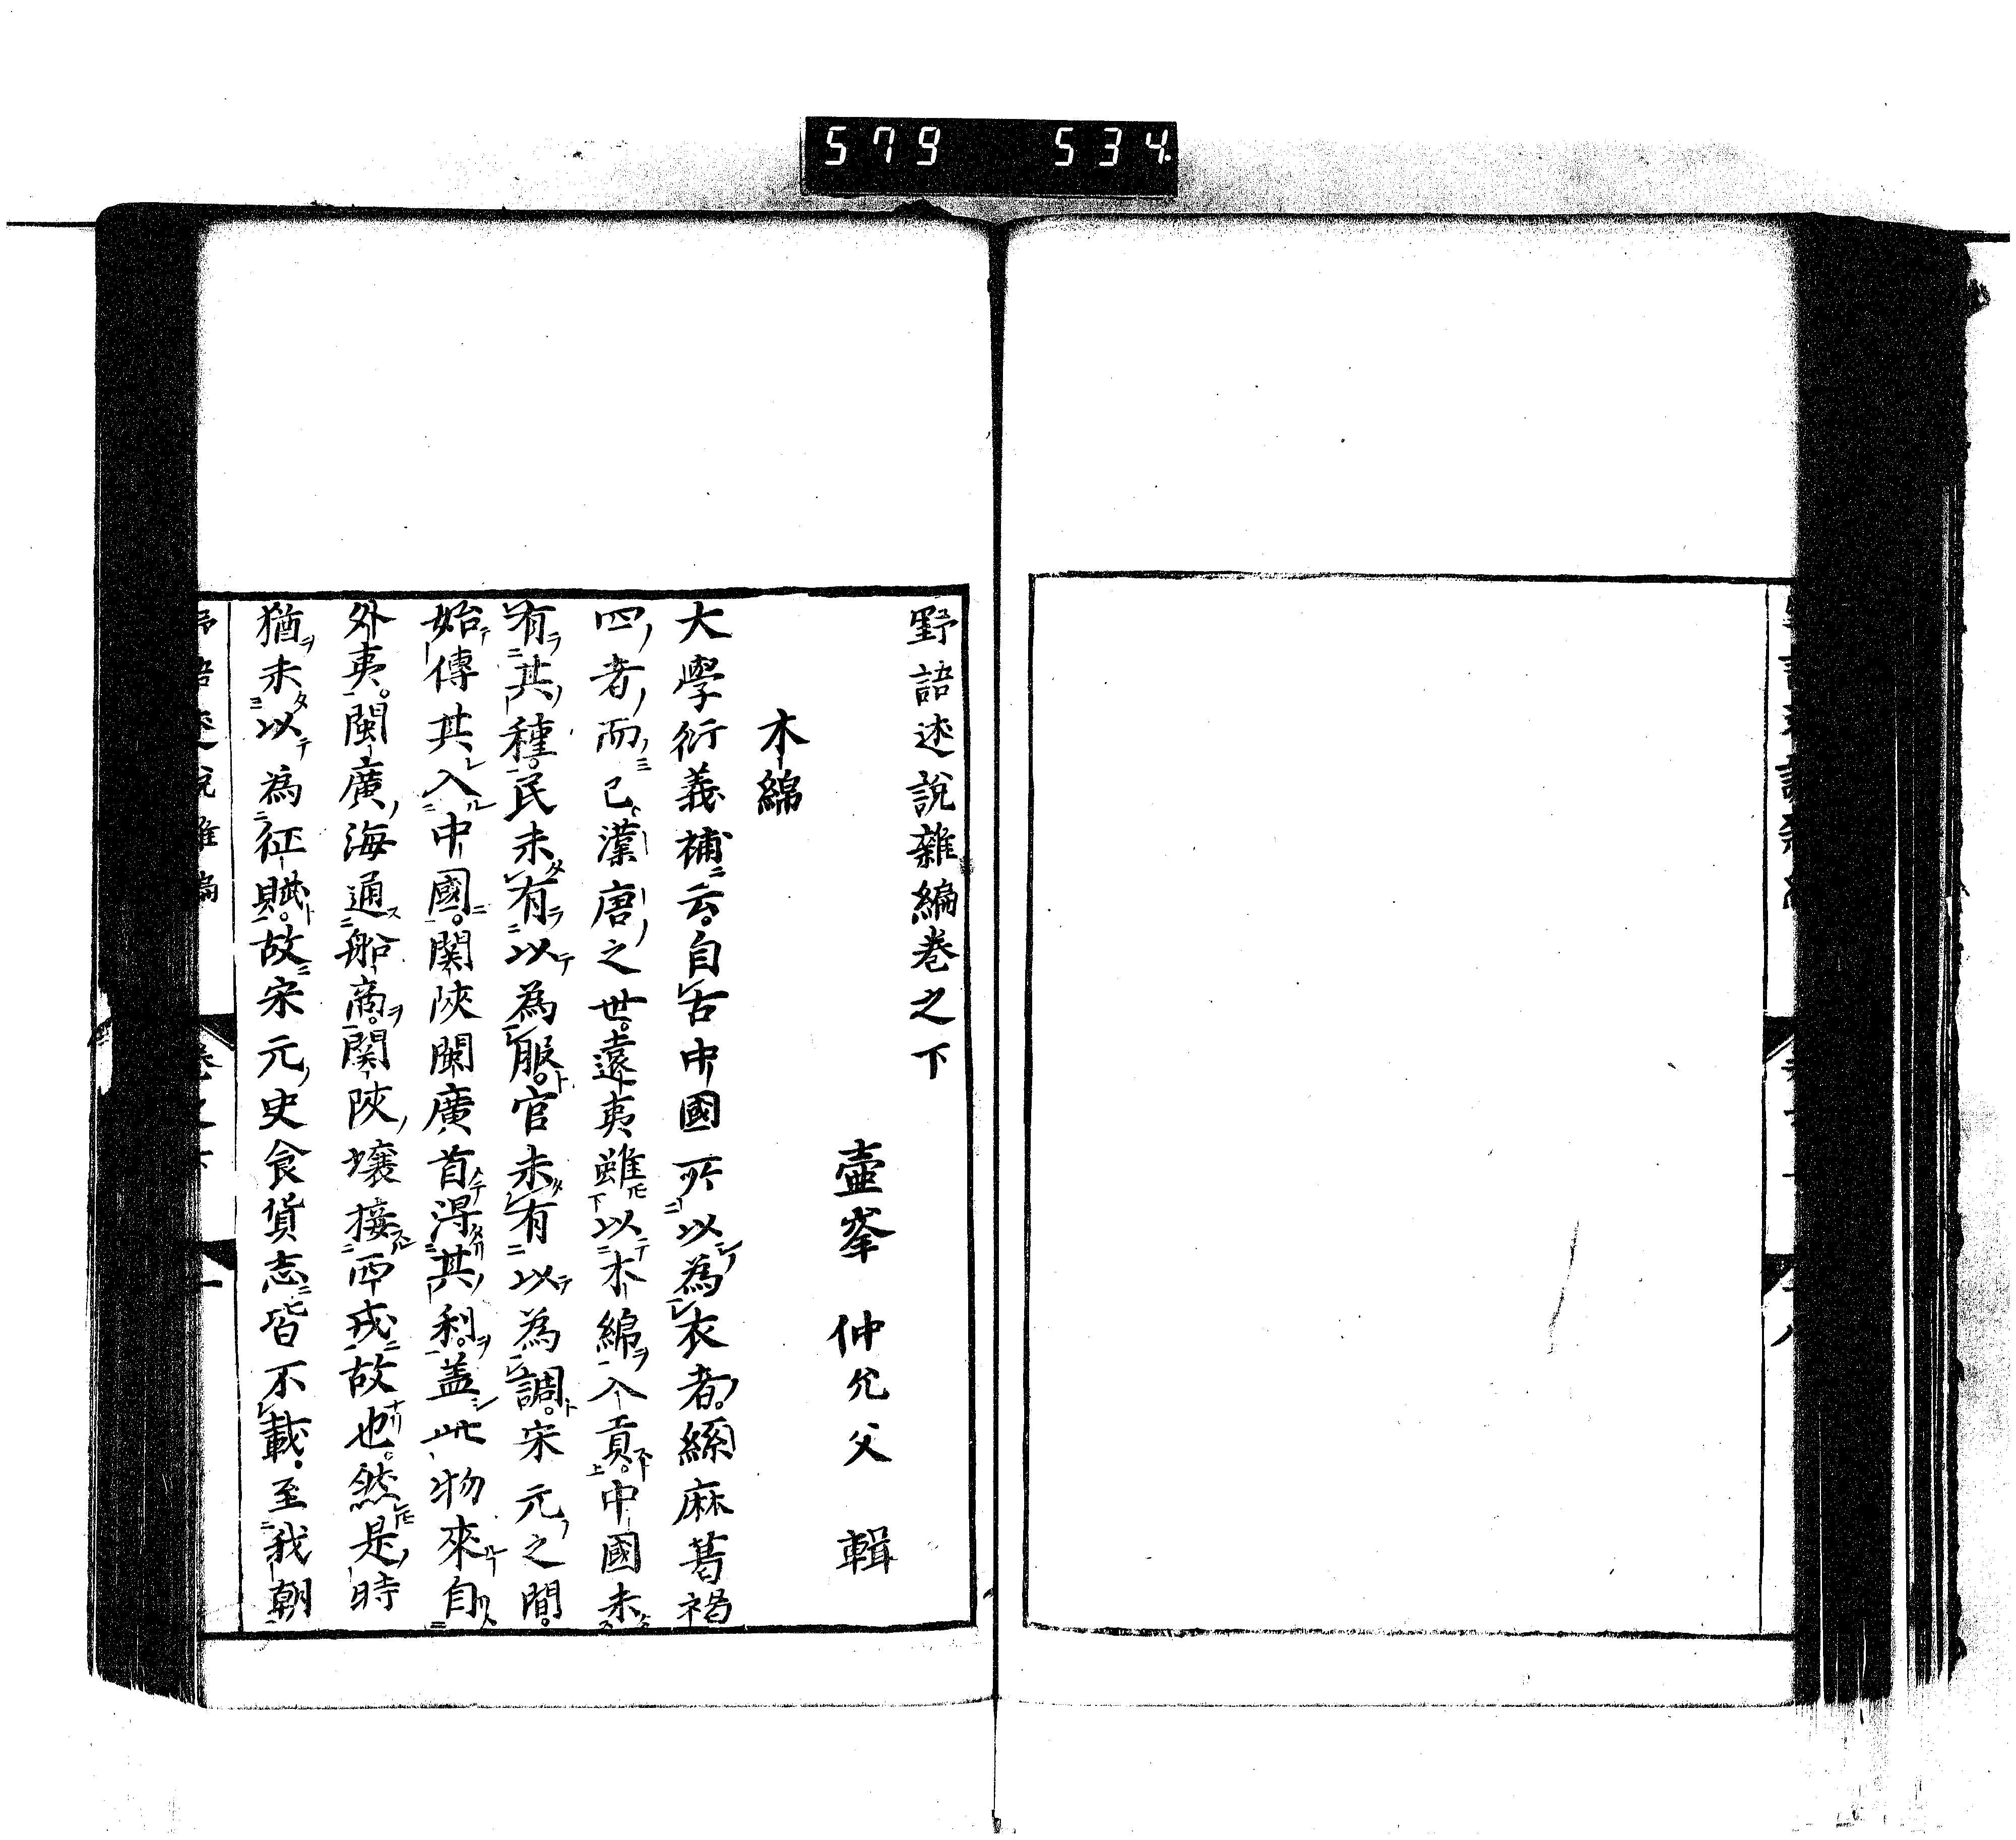 579 534
野語述說雜編卷之下
壺峯 仲允父 輯
木綿
大學衍義補云。自古中國所以為衣者。絲麻葛褐
四者而已。漢唐之世。遠夷雖以木綿入貢。中國未
有其種。民未有以為服。官未有以為調。宋元之間。
始傳其入中國。関陝閩廣首得其利。盖此物來自
外夷。閩廣海通船商。関陝壤接西戎故也。然是時
猶未以為征賦。故宋元史食貨志皆不載。至我朝